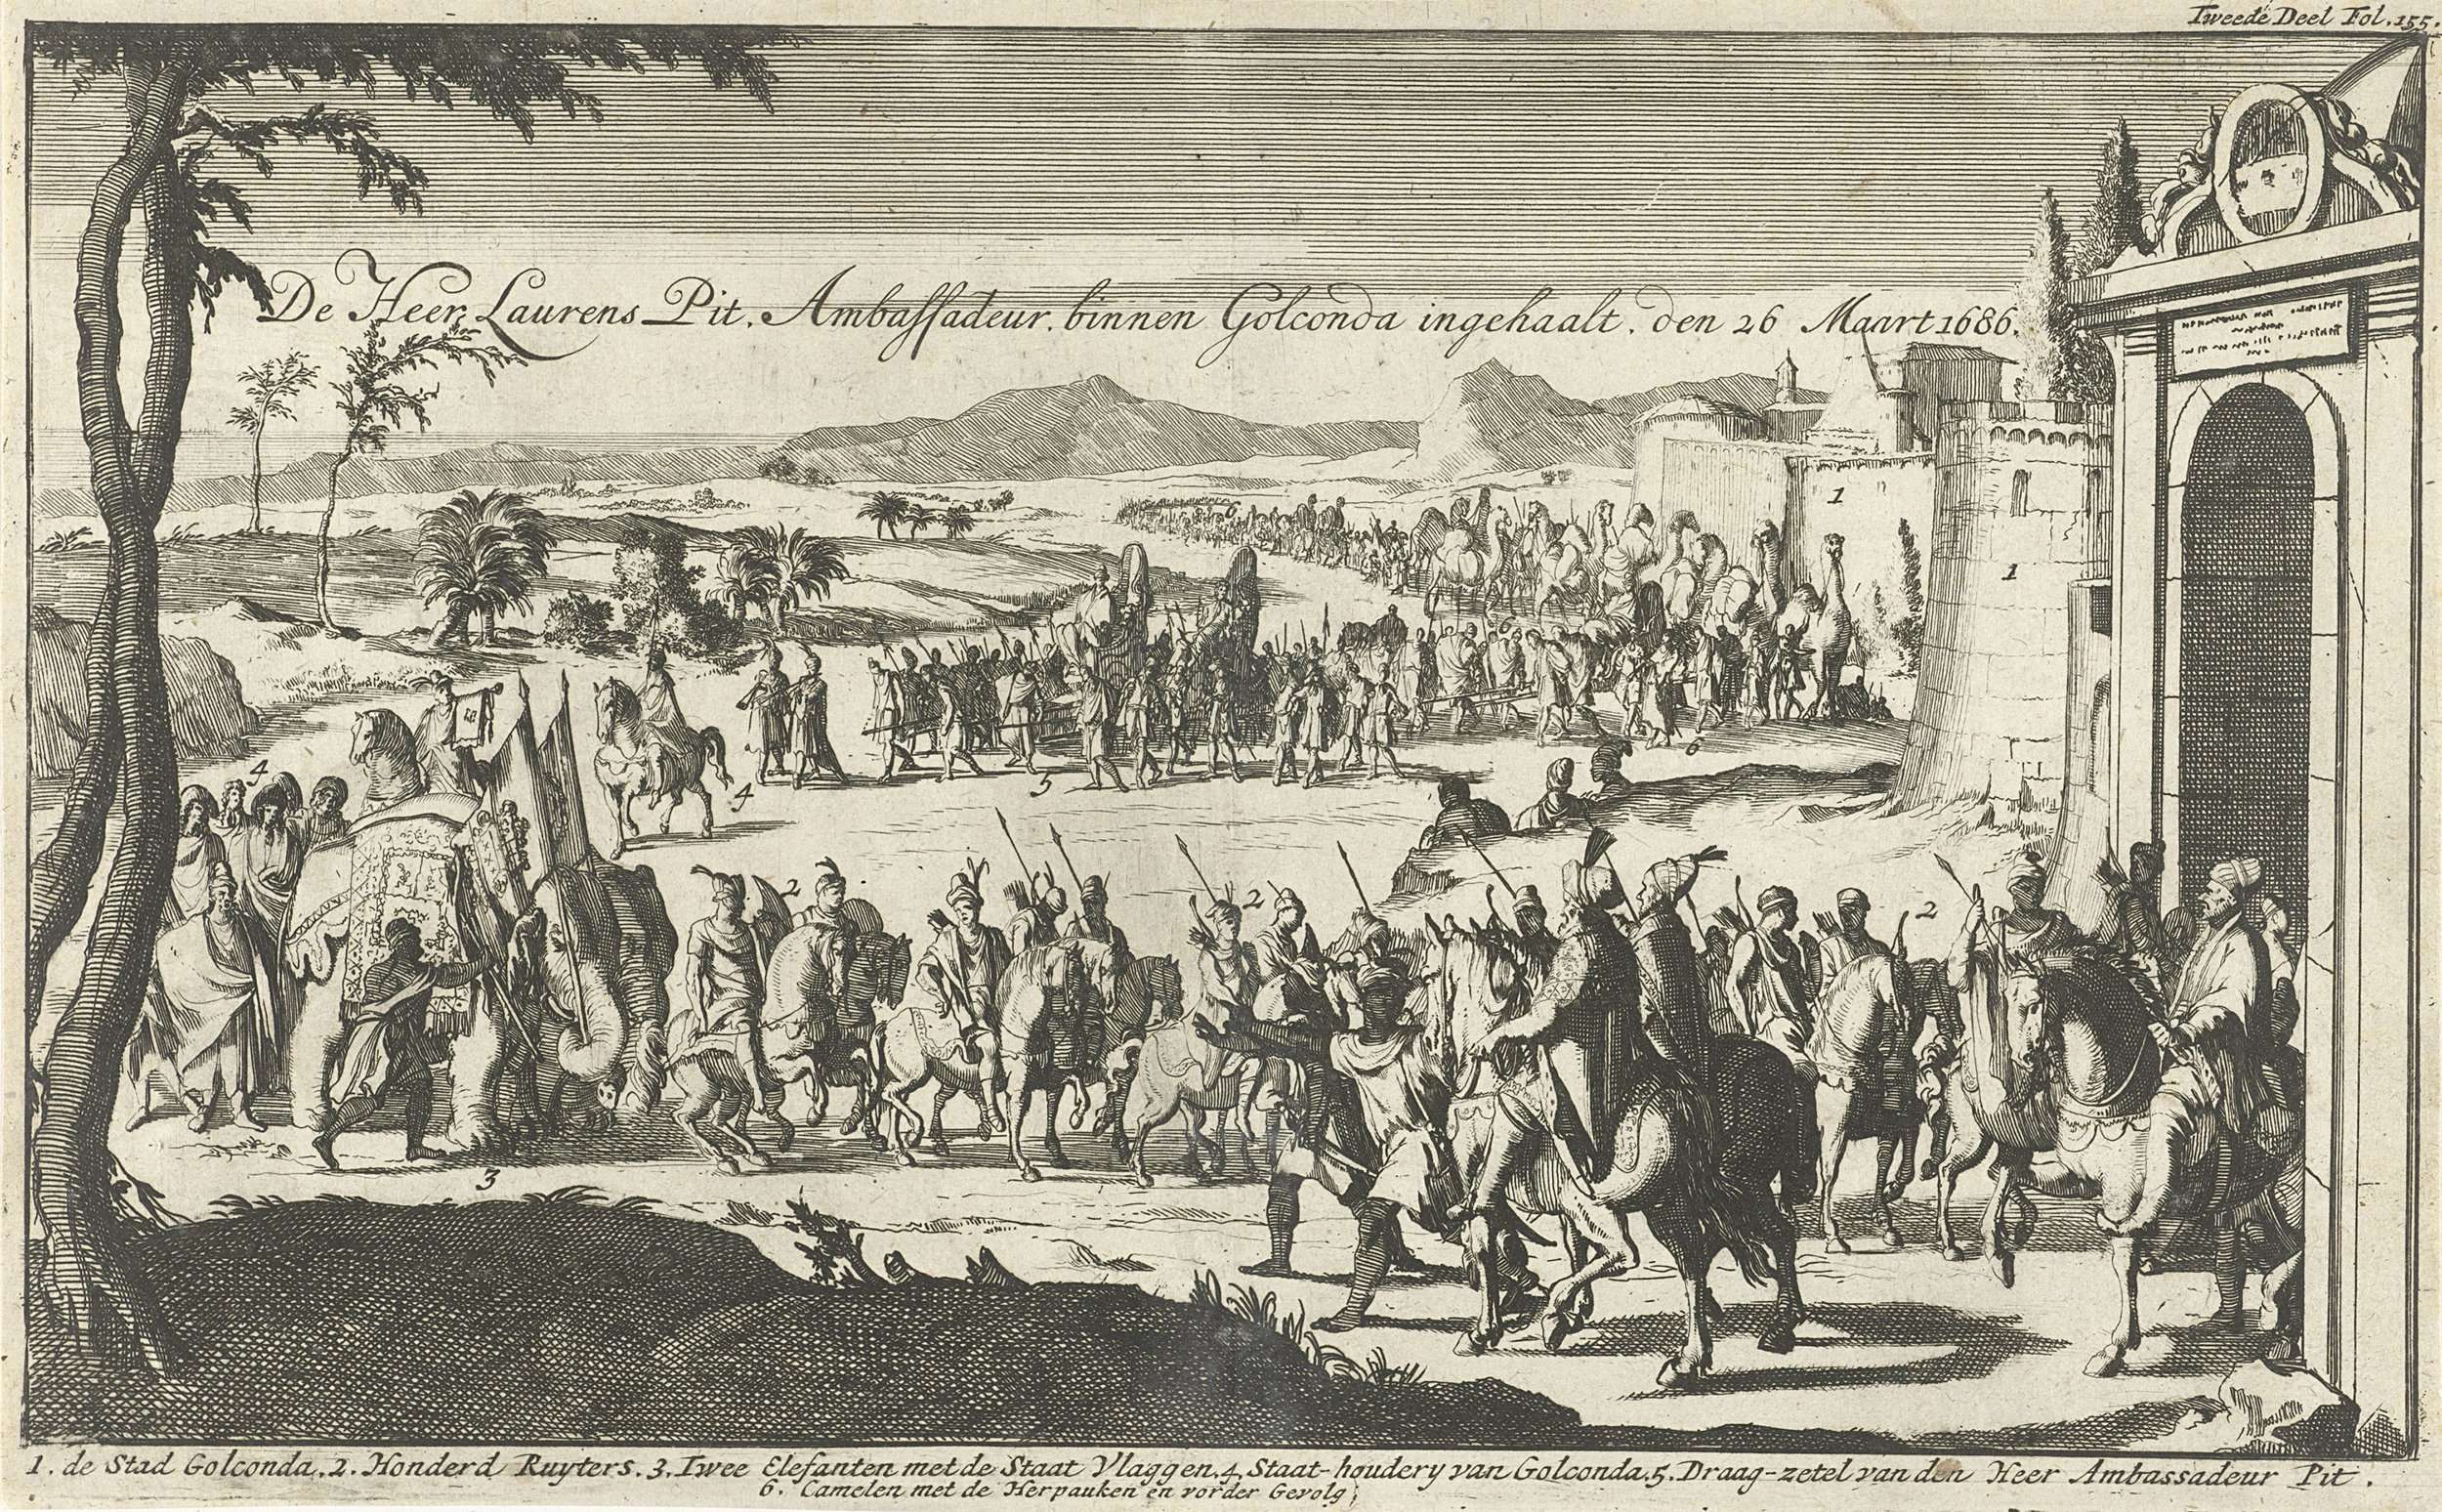 Tweede Deel Fol. 155.
De Heer Laurens Pit. Ambassadeur. binnen Golconda ingehaalt. den 26 Maart 1686.
1
1
6
6
4
4
5
2
2
2
3
1. de Stad Golconda. 2. Honderd Ruyters. 3. Twee Elefanten met de Staat Vlaggen. 4. Staat-houdery van Golconda. 5. Draag-zetel van den Heer Ambassadeur Pit.
6. Camelen met de Herpauken en vorder Gevolg.